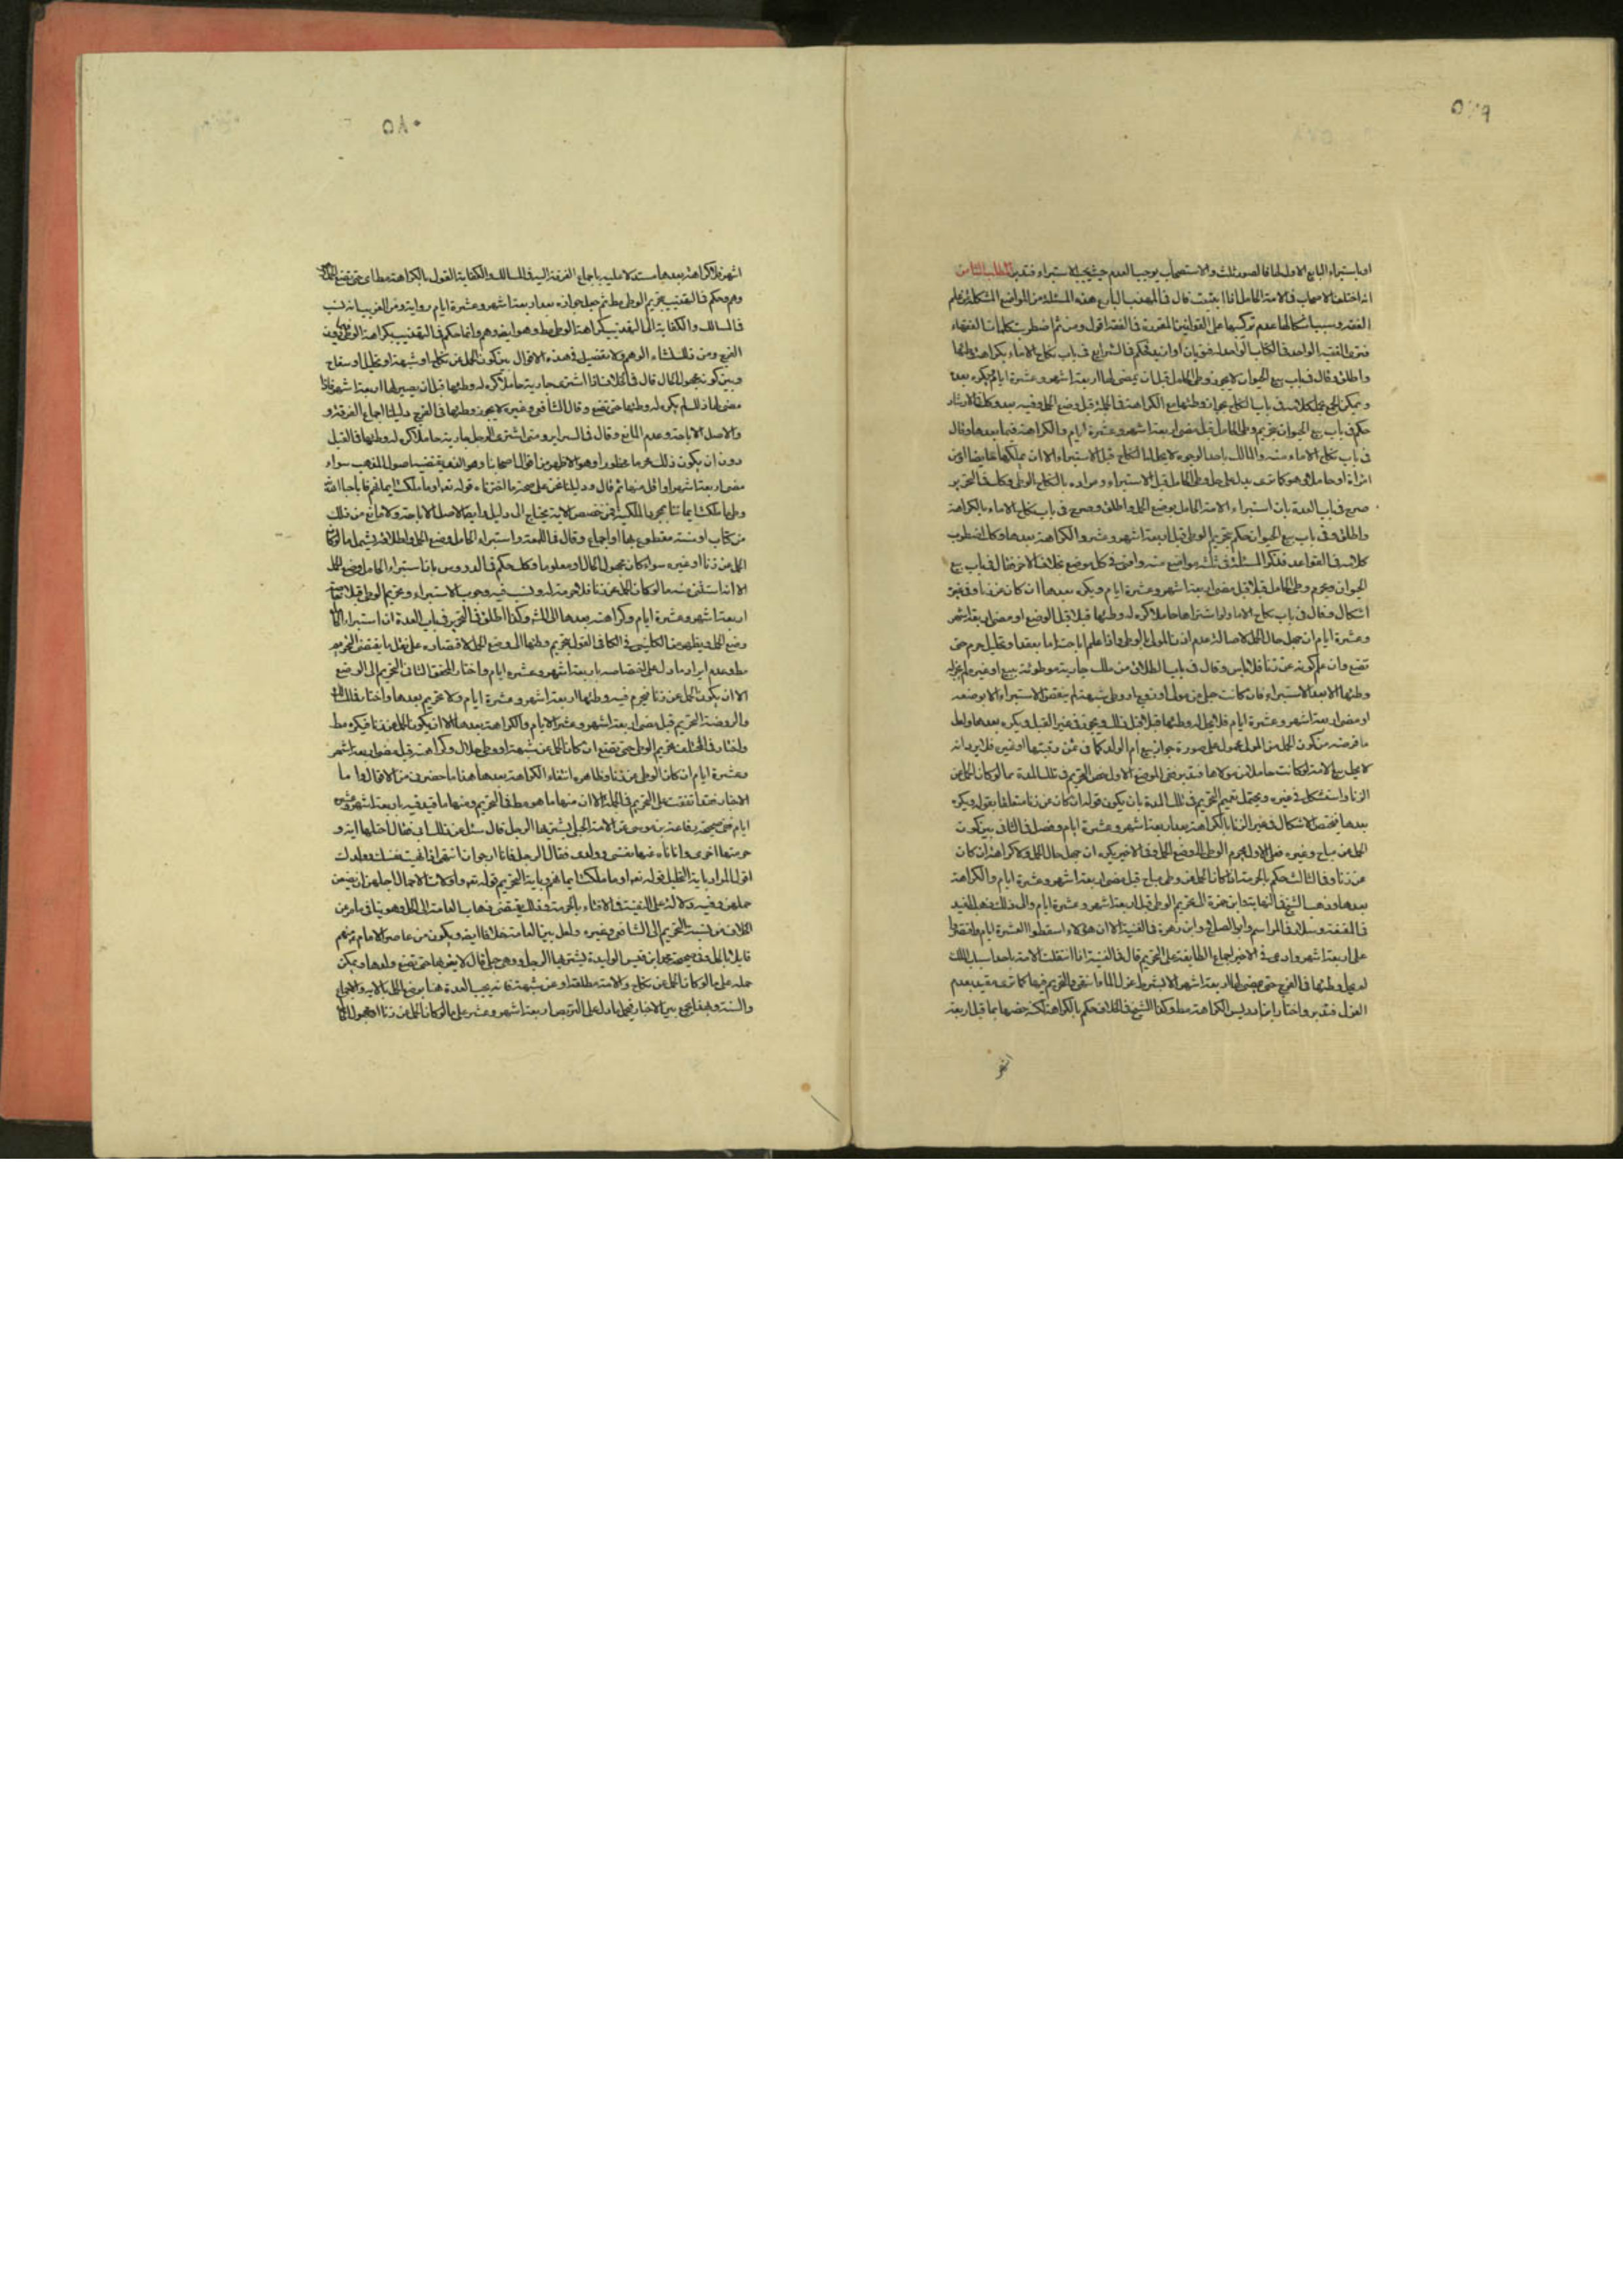 ٥٧٩
او باستبراء البايع الاول لها فالصور ثلث والاستصحاب يوجب العدم حيث يجب الاستبراء فتدبر المطلب الثامن
انه اختلف الاصحاب في الامة الحامل اذا ابتيعت قال في المهذب البارع هذه المسئلة من المواضع المشكلة في علم
الفقه وسبب اشكالها عدم تركبها على القوانين المقررة في الفقه اقول ومن ثم اضطربت كلمات الفقهاء
فترى الفقيه الواحد في الكتاب الواحد له فتويان او ازيد فحكم في الشرايع في باب نكاح الاماء بكراهة وطئها
واطلق وقال في باب بيع الحيوان لا يجوز وطى الحامل قبل ان يمضى لها اربعة اشهر وعشرة ايام ويكره بعده
ويمكن الجمع بحمل كلامه في باب النكاح بجواز وطئها مع الكراهة في الجملة قبل وضع الحمل وفيه بعد وكذا في الارشاد
حكم في باب بيع الحيوان بتحريم وطى الحامل قبل مضى اربعة اشهر وعشرة ايام والكراهة فيما بعدها وقال
في باب نكاح الاماء منه والمالك باحد الوجوه لا يحل له النكاح قبل الاستبراء الا ان يملكها حايضا او من
امراة او حاملا وهو كما ترى يدل على حل وطى الحامل قبل الاستبراء ومراده بالنكاح الوطى وكذا في التحرير
صرح في باب العدة بان استبراء الامة الحامل بوضع الحمل واطلق وصرح في باب نكاح الاماء بالكراهة
واطلق وفي باب بيع الحيوان حكم بتحريم الوطى قبل اربعة اشهر وعشر والكراهة بعدها وكذا اضطرب
كلامه في القواعد فذكر المسئلة في ثلثة مواضع منه وافتى في كل موضع بخلاف الاخر فقال في باب بيع
الحيوان ويحرم وطى الحامل قبلا قبل مضى اربعة اشهر وعشرة ايام ويكره بعدها ان كان عن زنا وفي غيره
اشكال وقال في باب نكاح الاماء ولو اشتراها حاملا كره له وطئها قبلا قبل الوضع او مضى اربعة اشهر
وعشرة ايام ان جهل حال الحمل لاصالة عدم اذن المولى بالوطى واذا علم اباحته اما بعقد او تحليل حرم حتى
تضع وان علم كونه عن زنا فلا باس وقال في باب الطلاق من ملك جارية موطوئة ببيع او غيره لم يجز له
وطئها الا بعد الاستبراء فان كانت حبلى من مولى او زوج او وطى شبهة لم ينقض الاستبراء الا بوضعه
او مضى اربعة اشهر وعشرة ايام فلا يحل له وطئها قبلا قبل ذلك ويجوز في غير القبل ويكره بعدها ولعل
ما فرضه من كون الحمل من المولى محمول على صورة جواز بيع ام الولد كما في ثمن رقبتها او غيره فلا يرد انه
لا يحل بيع الامة لو كانت حاملا من مولاها فتدبر ففى الموضع الاول خص التحريم في تلك المدة بما لو كان الحمل عن
الزنا واستشكل في غيره ويحتمل تعميم التحريم في تلك المدة بان يكون قوله ان كان عن زنا متعلقا بقوله ويكره
بعدها فيختص الاشكال في غير الزنا بالكراهة بعد اربعة اشهر وعشرة ايام وفصل في الثاني بين كون
الحمل عن مباح وغيره فعلى الاول يحرم الوطى الى وضع الحمل وفي الاخير يكره ان جهل حال الحمل ولا كراهة ان كان
عن زنا وفي الثالث حكم بالحرمة اذا كان الحمل عن وطى مباح قبل مضى اربعة اشهر وعشرة ايام والكراهة
بعدها وذهب الشيخ في النهاية وابن حمزة الى تحريم الوطى قبل اربعة اشهر وعشرة ايام والى ذلك ذهب المفيد
في المقنعة وسلار في المراسم وابو الصلاح وابن زهرة في الغنية الا ان هؤلاء اسقطوا العشرة ايام واقتصروا
على اربعة اشهر وادعى في الاخير اجماع الطايفة على التحريم قال في الغنية اذا انتقلت الامة باحد اسباب الملك
لم يحل وطئها في الفرج حتى يمضى لها اربعة اشهر الا بشرط عزل الماء انتهى والتحريم فيها كما ترى مقيد بعدم
العزل فتدبر واختار ابن ادريس الكراهة مطلقا وكذا الشيخ في الخلاف حكم بالكراهة لكنه خصها بما قبل اربعة
اشهر
٥٨٠
اشهر فلا كراهة بعدها مستدلا عليه باجماع الفرقة اليه في المسالك والكفاية القول بالكراهة مطلقا حتى تضع الحمل
وهم وحكم في التهذيب بتحريم الوطى مطلقا ثم جعل جوازه بعد اربعة اشهر وعشرة ايام رواية ومن الغريب انه نسب
في المسالك والكفاية الى التهذيب كراهة الوطى مطلقا وهو ايضا وهم وانما حكم في التهذيب بكراهة الوطى دون
الفرج ومن ذلك نشاء الوهم ولا تفصيل في هذه الاقوال بين كون الحمل عن نكاح او شبهة او تحليل او سفاح
وبين كونه مجهول الحال قال في الخلاف اذا اشترى جارية حاملا كره له وطئها قبل ان يصير لها اربعة اشهر فاذا
مضى لها ذلك لم يكره له وطئها حتى تضع وقال الشافعى وغيره لا يجوز وطئها في الفرج دليلنا اجماع الفرقة و
والاصل الاباحة وعدم المانع وقال في السراير ومتى اشترى الرجل جارية حاملا كره له وطئها في القبل
دون ان يكون ذلك محرما محظورا وهو الاظهر من اقوال اصحابنا وهو الذى يقتضيه اصول المذهب سواء
مضى اربعة اشهر او اقل منها ثم قال ودليلنا نحن على صحة ما اخترناه قوله تعالى او ما ملكت ايمانهم فاباحنا الله
وطى ما ملكت ايماننا بمجرد الملكية فمن خصص الاية يحتاج الى دليل وايضا الاصل الاباحة ولا مانع من ذلك
من كتاب او سنة مقطوع بها او اجماع وقال في اللمعة واستبراء الحامل وضع الحمل واطلاقه يشمل ما لو كان
الحمل عن زنا او غيره سواء كان مجهول الحال او معلوما وكذا حكم في الدروس بان استبراء الحامل وضع الحمل
الا انه استثنى منه ما لو كان الحمل عن زنا فلا حرمة له ونسب فيه وجوب الاستبراء وتحريم الوطى قبلا
اربعة اشهر وعشرة ايام وكراهته بعدها الى وكذا اطلق في التحرير في باب العدة ان استبراء الحامل
وضع الحمل ويظهر من الكلينى في الكافى القول بتحريم وطئها الى وضع الحمل لاقتصاره على نقل ما يقتضى التحريم
مطلقا وعدم ايراد ما دل على اختصاصه باربعة اشهر وعشرة ايام واختار المحقق الثانى التحريم الى الوضع
الا ان يكون الحمل عن زنا فيحرم فيه وطئها اربعة اشهر وعشرة ايام ولا تحريم بعدها واختار في المسالك
والروضة التحريم قبل مضى اربعة اشهر وعشرة الايام والكراهة بعدها الا ان يكون الحمل عن زنا فيكره مطلقا
واختار في المختلف تحريم الوطى حتى تضع ان كان الحمل عن شبهة او وطى حلال وكراهته قبل مضى اربعة اشهر
وعشرة ايام ان كان الوطى عن زنا وظاهره انتفاء الكراهة بعدها هذا ما حضرنى من الاقوال واما
الاخبار فقد اتفقت على التحريم في الجملة الا ان منها ما هو مطلق في التحريم ومنها ما قيد فيه باربعة اشهر وعشرة
ايام ففى صحيحة رفاعة بن موسى عن الامة الحبلى يشتريها الرجل قال سئل عن ذلك ابى فقال احلتها اية و
حرمتها اخرى وانا ناه عنها نفسى وولدى فقال الرجل فانا ارجو ان انتهى اذا نهيت نفسك وولدك
اقول المراد باية التحليل قوله تعالى او ما ملكت ايمانهم وباية التحريم قوله تعالى واولات الاحمال اجلهن ان يضعن
حملهن وفيه دلالة على التقية في الافتاء بالحرمة وذلك يقتضى ذهاب العامة الى الحل وهو ينافى ما مر عن
الخلاف من نسبة التحريم الى الشافعى وغيره ولعل بين العامة خلافا ايضا ويكون من عاصر الامام منهم
قايلا بالحل وفي صحيحة محمد ابن قيس الوليدة يشتريها الرجل وهى حبلى قال لا يقربها حتى تضع ولدها ويمكن
حمله على ما لو كان الحمل عن نكاح والامة مطلقة او عن شبهة فانه يجب العدة هنا بوضع الحمل بالاية والاجماع
والسنة وبهذا يجمع بين الاخبار فيحمل ما دل على التربص اربعة اشهر وعشر على ما لو كان الحمل عن زنا او مجهول الحال